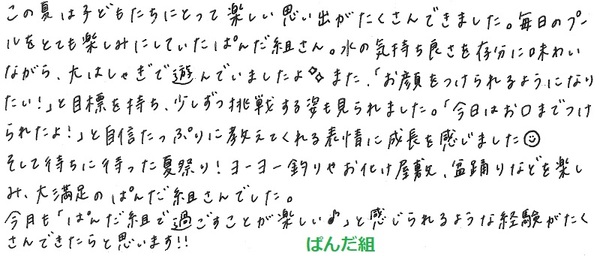 この夏は子どもたちにとって楽しい思い出がたくさんできました。毎日のプー
ルをとても楽しみにしていたぱんだ組さん。水の気持ち良さを存分に味わい
ながら、大はしゃぎで遊んでいましたよ✧✧ また、「お顔をつけられるようになり
たい!」と目標を持ち、少しずつ挑戦する姿も見られました。「今日はお口までつけ
られたよ!」と自信たっぷりに教えてくれる表情に成長を感じました☺
そして待ちに待った夏祭り!ヨーヨー釣りやお化け屋敷、盆踊りなどを楽し
み、大満足のぱんだ組さんでした。
今月も「ぱんだ組で過ごすことが楽しい♪」と感じられるような経験がたく
さんできたらと思います!!
ぱんだ組